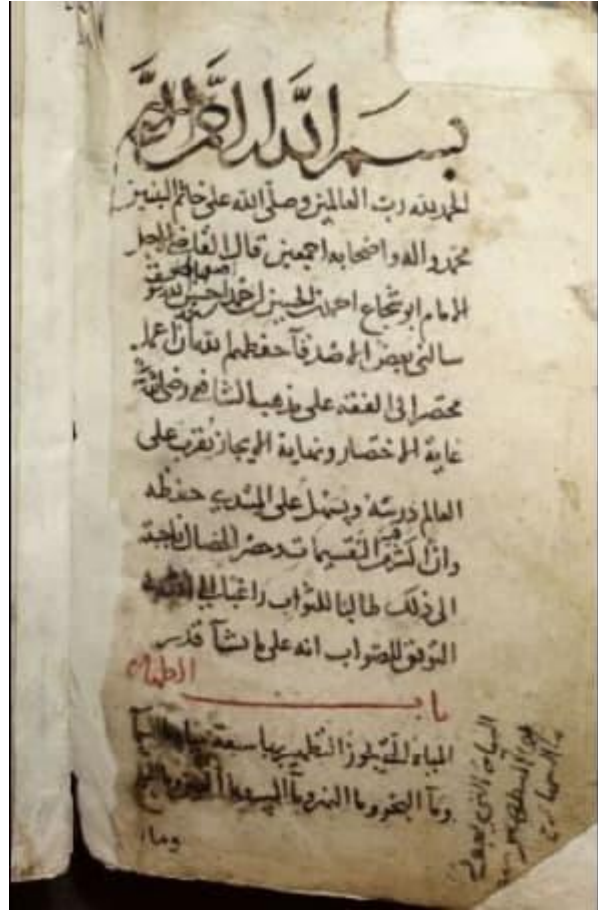 بسم الله الرحمن الرحيم
الحمد لله رب العالمين وصلى الله على خاتم النبيين
محمد واله واصحابه اجمعين قال القاضي الجليل
الامام ابو شجاع احمد بن الحسين بن احمد
سالني بعض الاصدقآ حفظهم الله ان اعمل
مختصرا في الفقه على مذهب الشافعي رضي الله عنه
غاية الاختصار ونهاية الايجاز يقرب على
العالم درسه ويسهل على المبتدي حفظه
وان اكثر فيه التقسيمات وحصر الخصال فاجبته
الى ذلك طالبا للثواب راغبا الى الله في
التوفيق للصواب انه على ما يشآ قدير
باب الطهارة
المياه التي يجوز التطهير بها سبعة مياه
ومآ البحر وما النهر ومآ البير وما العين وما
وما
المياه التي يجوز
بها التطهير سبعة
مآ السما